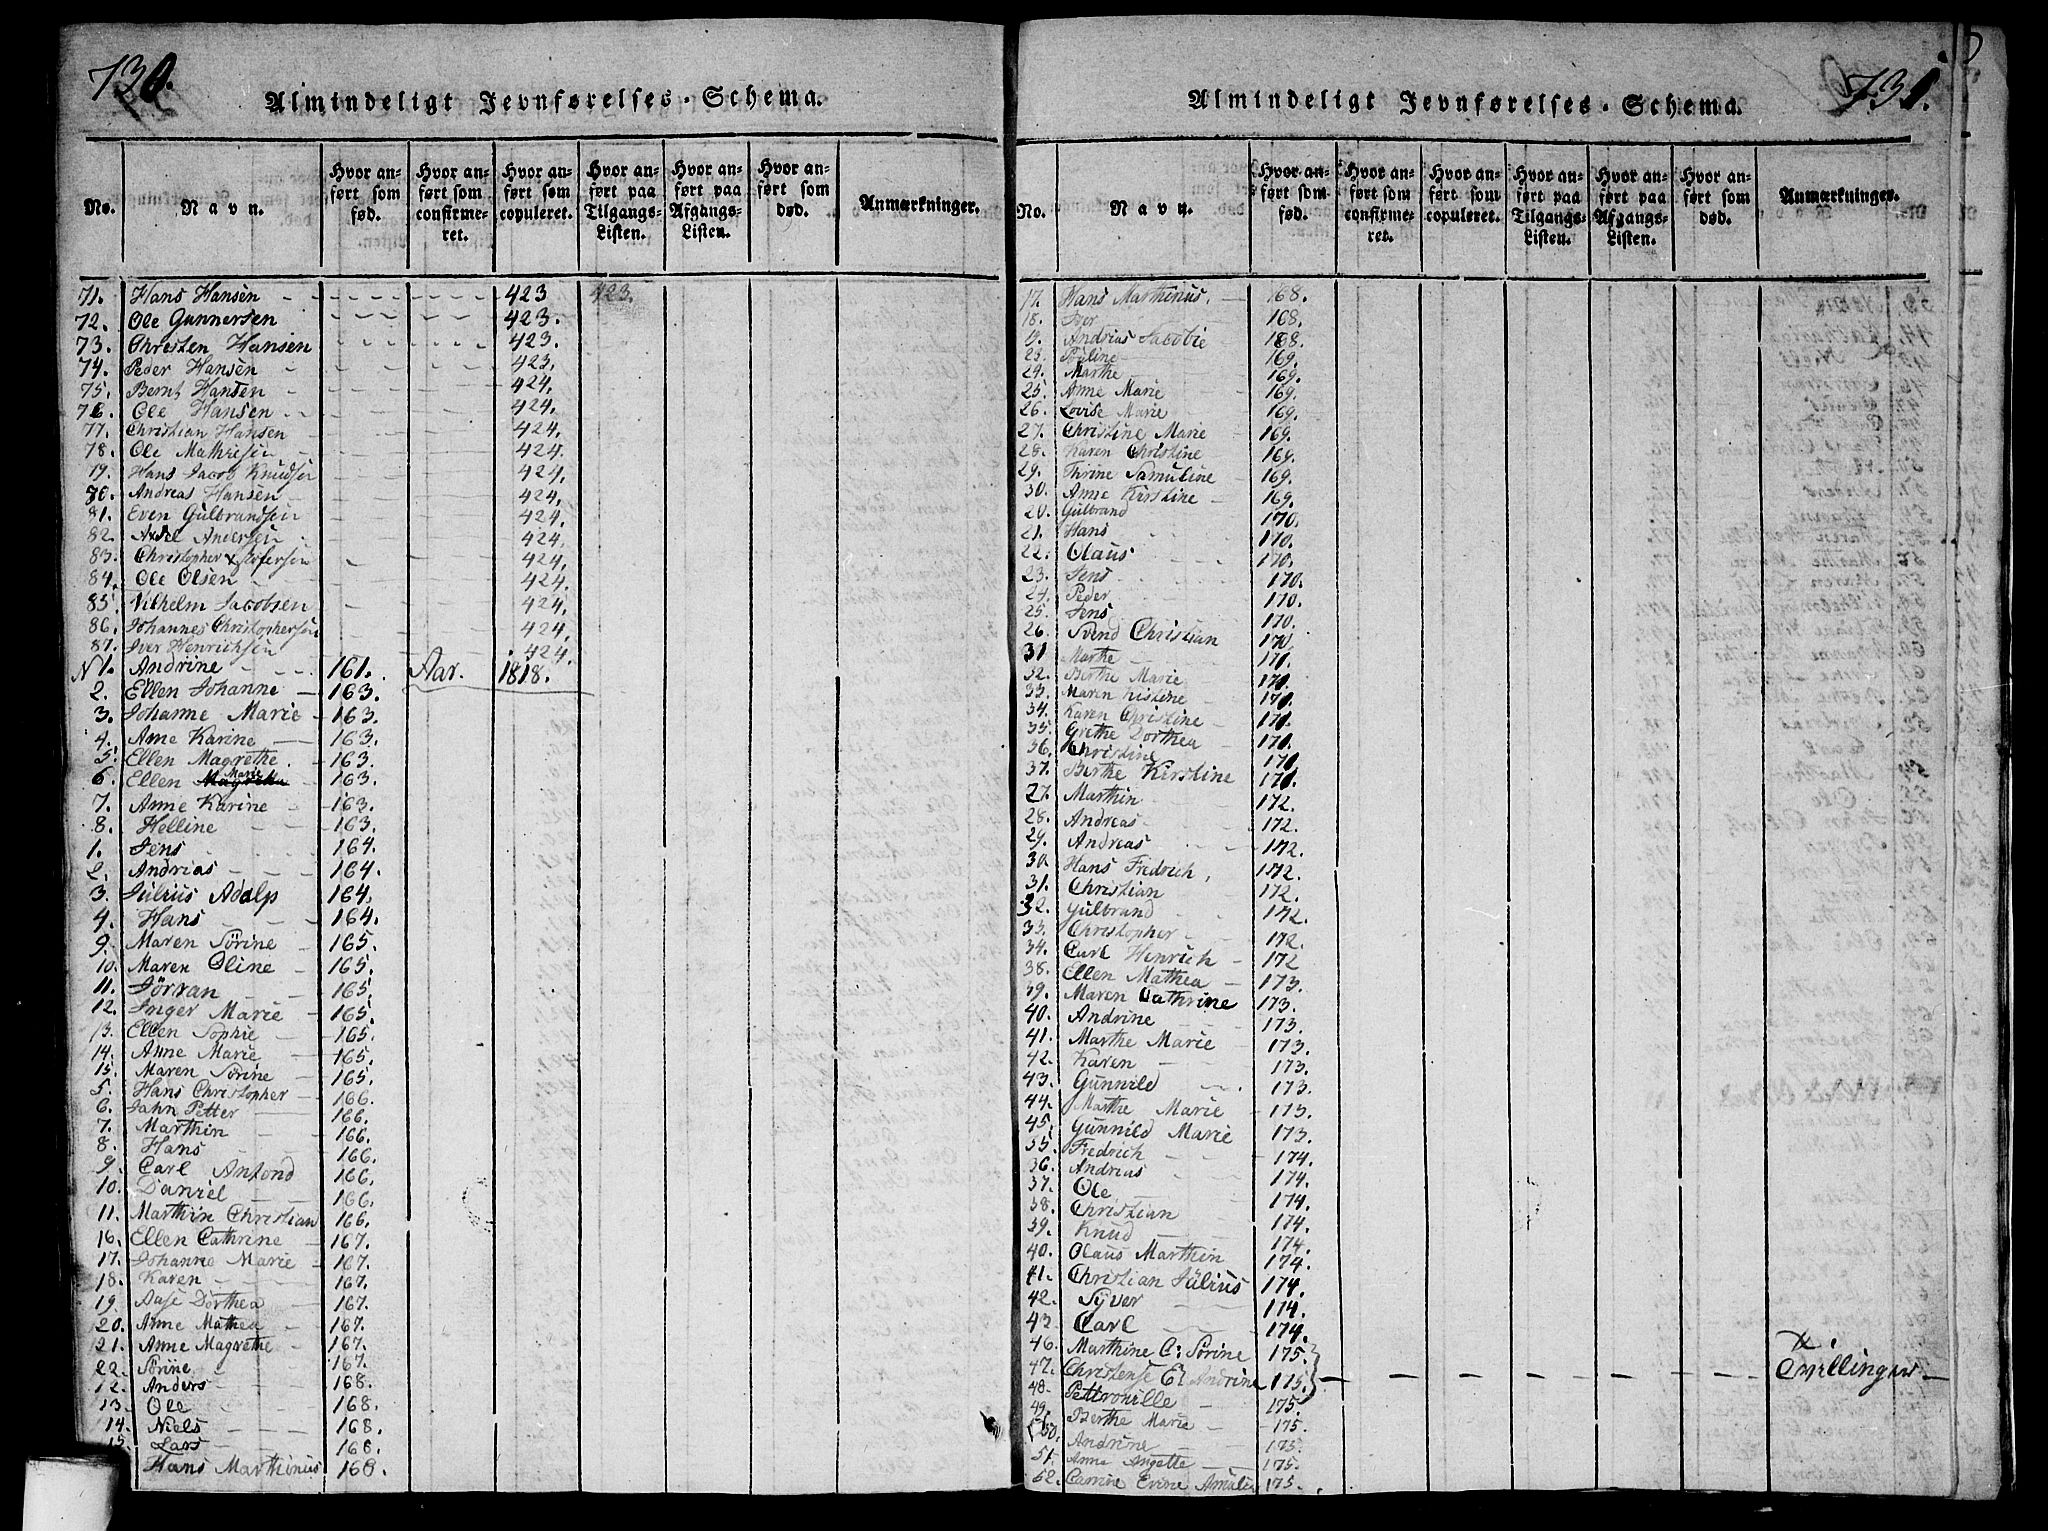 730.
Almindeligt Jevnførelses-Schema.
No. Navn. Hvor anført som fød. Hvor anført som confirmeret. Hvor anført som copuleret. Hvor anført paa Tilgangs-Listen. Hvor anført paa Afgangs-Listen. Hvor anført som død. Anmærkninger.
71. Hans Hansen 423 423.
72. Ole Gunnersen 423.
73. Christen Hansen 423.
74. Peder Hansen 423.
75. Bernt Hansen 424.
76. Ole Hansen 424.
77. Christian Hansen 424.
78. Ole Mathisen 424.
79. Hans Jacob Knudsen 424.
80. Andreas Hansen 424.
81. Even Gulbrandsen 424.
82. Andersen 424.
83. Christopher 424.
84. Ole Olsen 424.
85. Vilhelm Jacobsen 424.
86. Johannes Christophersen 424.
87. Iver Henrichsen 424.
N 1. Andrine 161. Aar. 1818.
2. Ellen Johanne 163.
3. Johanne Marie 163.
4. Anne Karine 163.
5. Ellen Magrethe 163.
6. Ellen Marie 163.
7. Anne Karine 163.
8. Helline 163.
1. Jens 164.
2. Andrias 164.
3. Julius Adolp 164.
4. Hans 164.
9. Maren Sörine 165.
10. Maren Oline 165.
11. Jörran 165.
12. Inger Marie 165.
13. Ellen Sophie 165.
14. Anne Marie 165.
15. Maren Sörine 165.
5. Hans Christopher 166.
6. Jahn Petter 166.
7. Marthin 166.
8. Hans 166.
9. Carl Antond 166.
10. Daniel 166.
11. Marthin Christian 166.
16. Ellen Cathrine 167.
17. Johanne Marie 167.
18. Karen 167.
19. Aase Dorthea 167.
20. Anne Mathea 167.
21. Anne Magrethe 167.
22. Sörine 167.
12. Anders 168.
13. Ole 168.
14. Niels 168.
15. Lars 168.
Hans Marthinus 168.
731.
Almindeligt Jevnførelses-Schema.
No. Navn. Hvor anført som fød. Hvor anført som confirmeret. Hvor anført som copuleret. Hvor anført paa Tilgangs-Listen. Hvor anført paa Afgangs-Listen. Hvor anført som død. Anmærkninger.
17. Hans Marthinus 168.
18. Iver 168.
19. Andrias Jacobie 168.
23. Pauline 169.
24. Marthe 169.
25. Anne Marie 169.
26. Lovise Marie 169.
27. Christine Marie 169.
28. Karen Christine 169.
29. Thrine Samuline 169.
30. Anne Kirstine 169.
20. Gulbrand 170.
21. Hans 170.
22. Olaus 170.
23. Jens 170.
24. Peder 170.
25. Jens 170.
26. Svend Christian 170.
31. Marthe 171.
32. Berthe Marie 171.
33. Maren 171.
34. Karen Christine 171.
35. Grethe Dorthea 171.
36. Christine 171.
37. Berthe Kirstine 171.
27. Marthin 172.
28. Andreas 172.
29. Andreas 172.
30. Hans Fredrich 172.
31. Christian 172.
32. Gulbrand 172.
33. Christopher 172.
34. Carl Henrich 172
38. Ellen Mathea 173.
39. Maren Cathrine 173.
40. Andrine 173.
41. Marthe Marie 173.
42. Karen 173.
43. Gunnild 173.
44. Marthe Marie 173.
45. Gunnild Marie 173.
35. Fredrich 174.
36. Andrias 174.
37. Ole 174.
38. Christian 174.
39. Knud 174.
40. Olaus Marthin 174.
41. Christian Julius 174.
42. Syver 174.
43. Carl 174.
46. Marthine C: Sörine 175.
47. Christense El Andrine 175. Tvillinger
48. Pettronille 175.
49. Berthe Marie 175.
50. Andrine 175.
51. Anne Angette 175.
52. Evine 175.